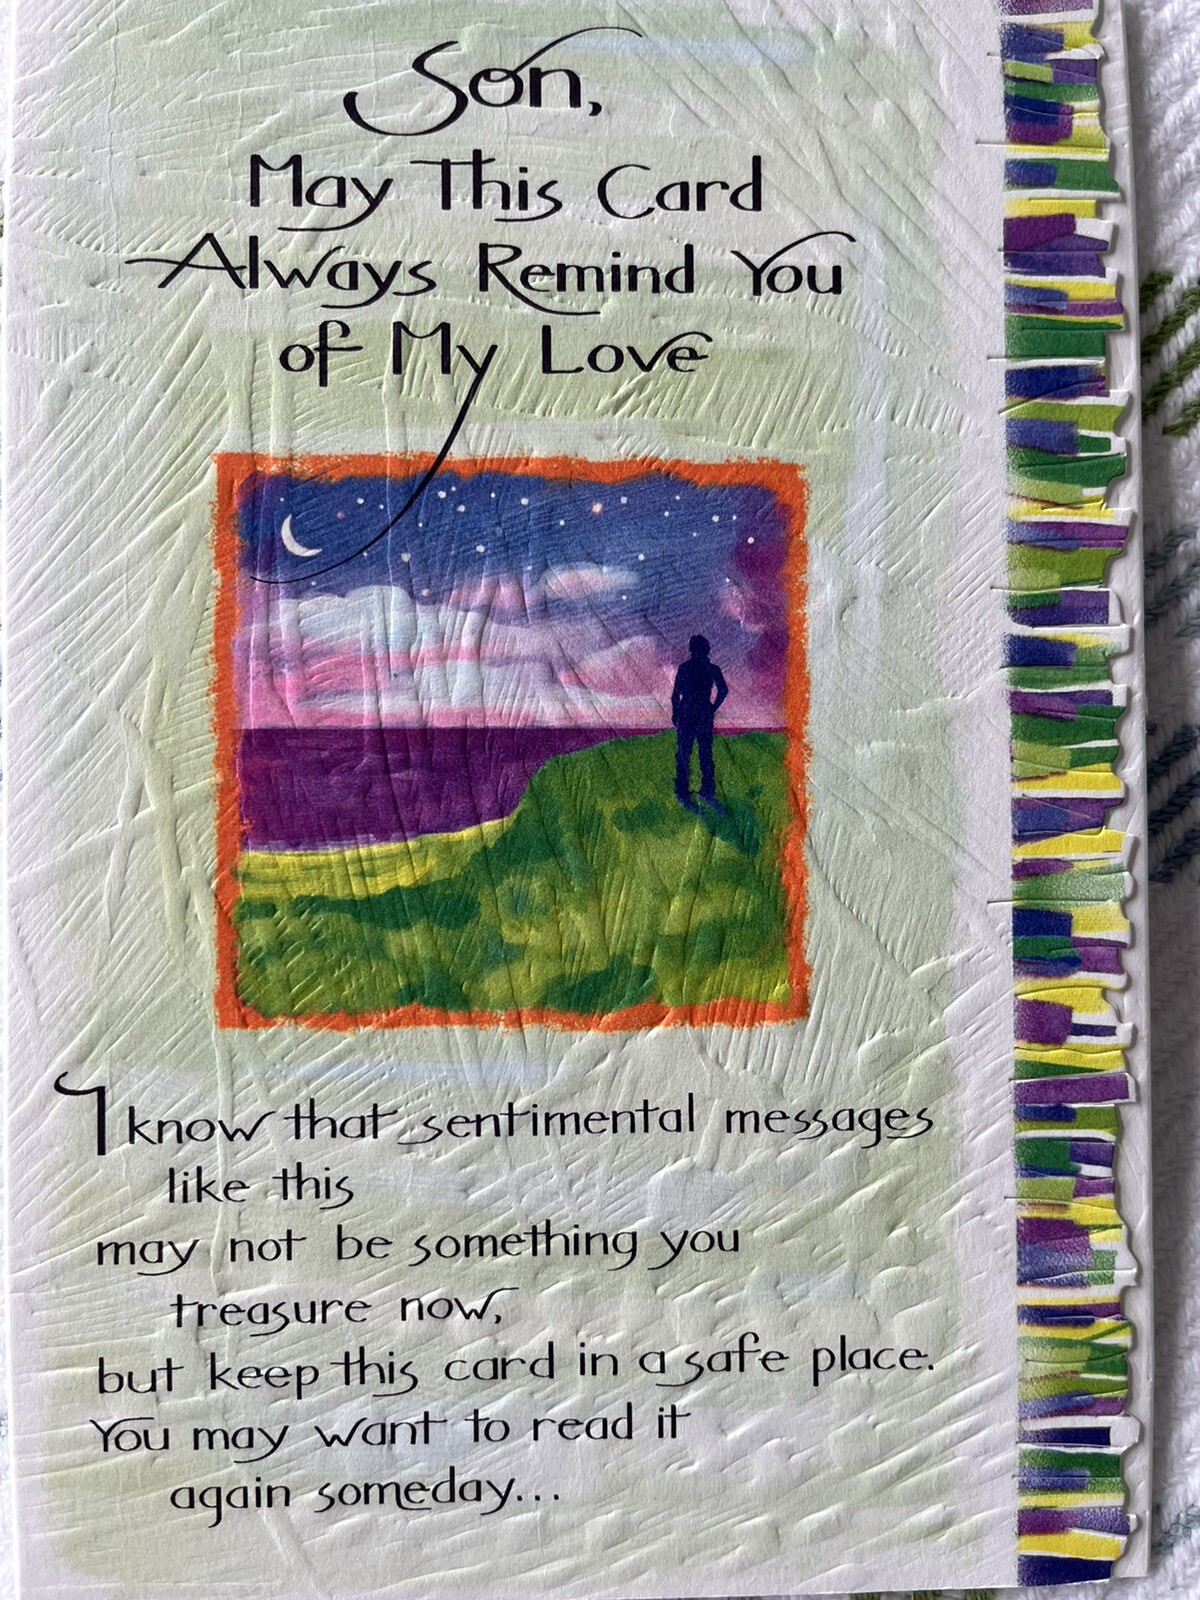 Son,
May This Card
Always Remind You
of My Love
I know that sentimental messages
like this
may not be something you
treasure now,
but keep this card in a safe place.
You may want to read it
again someday...